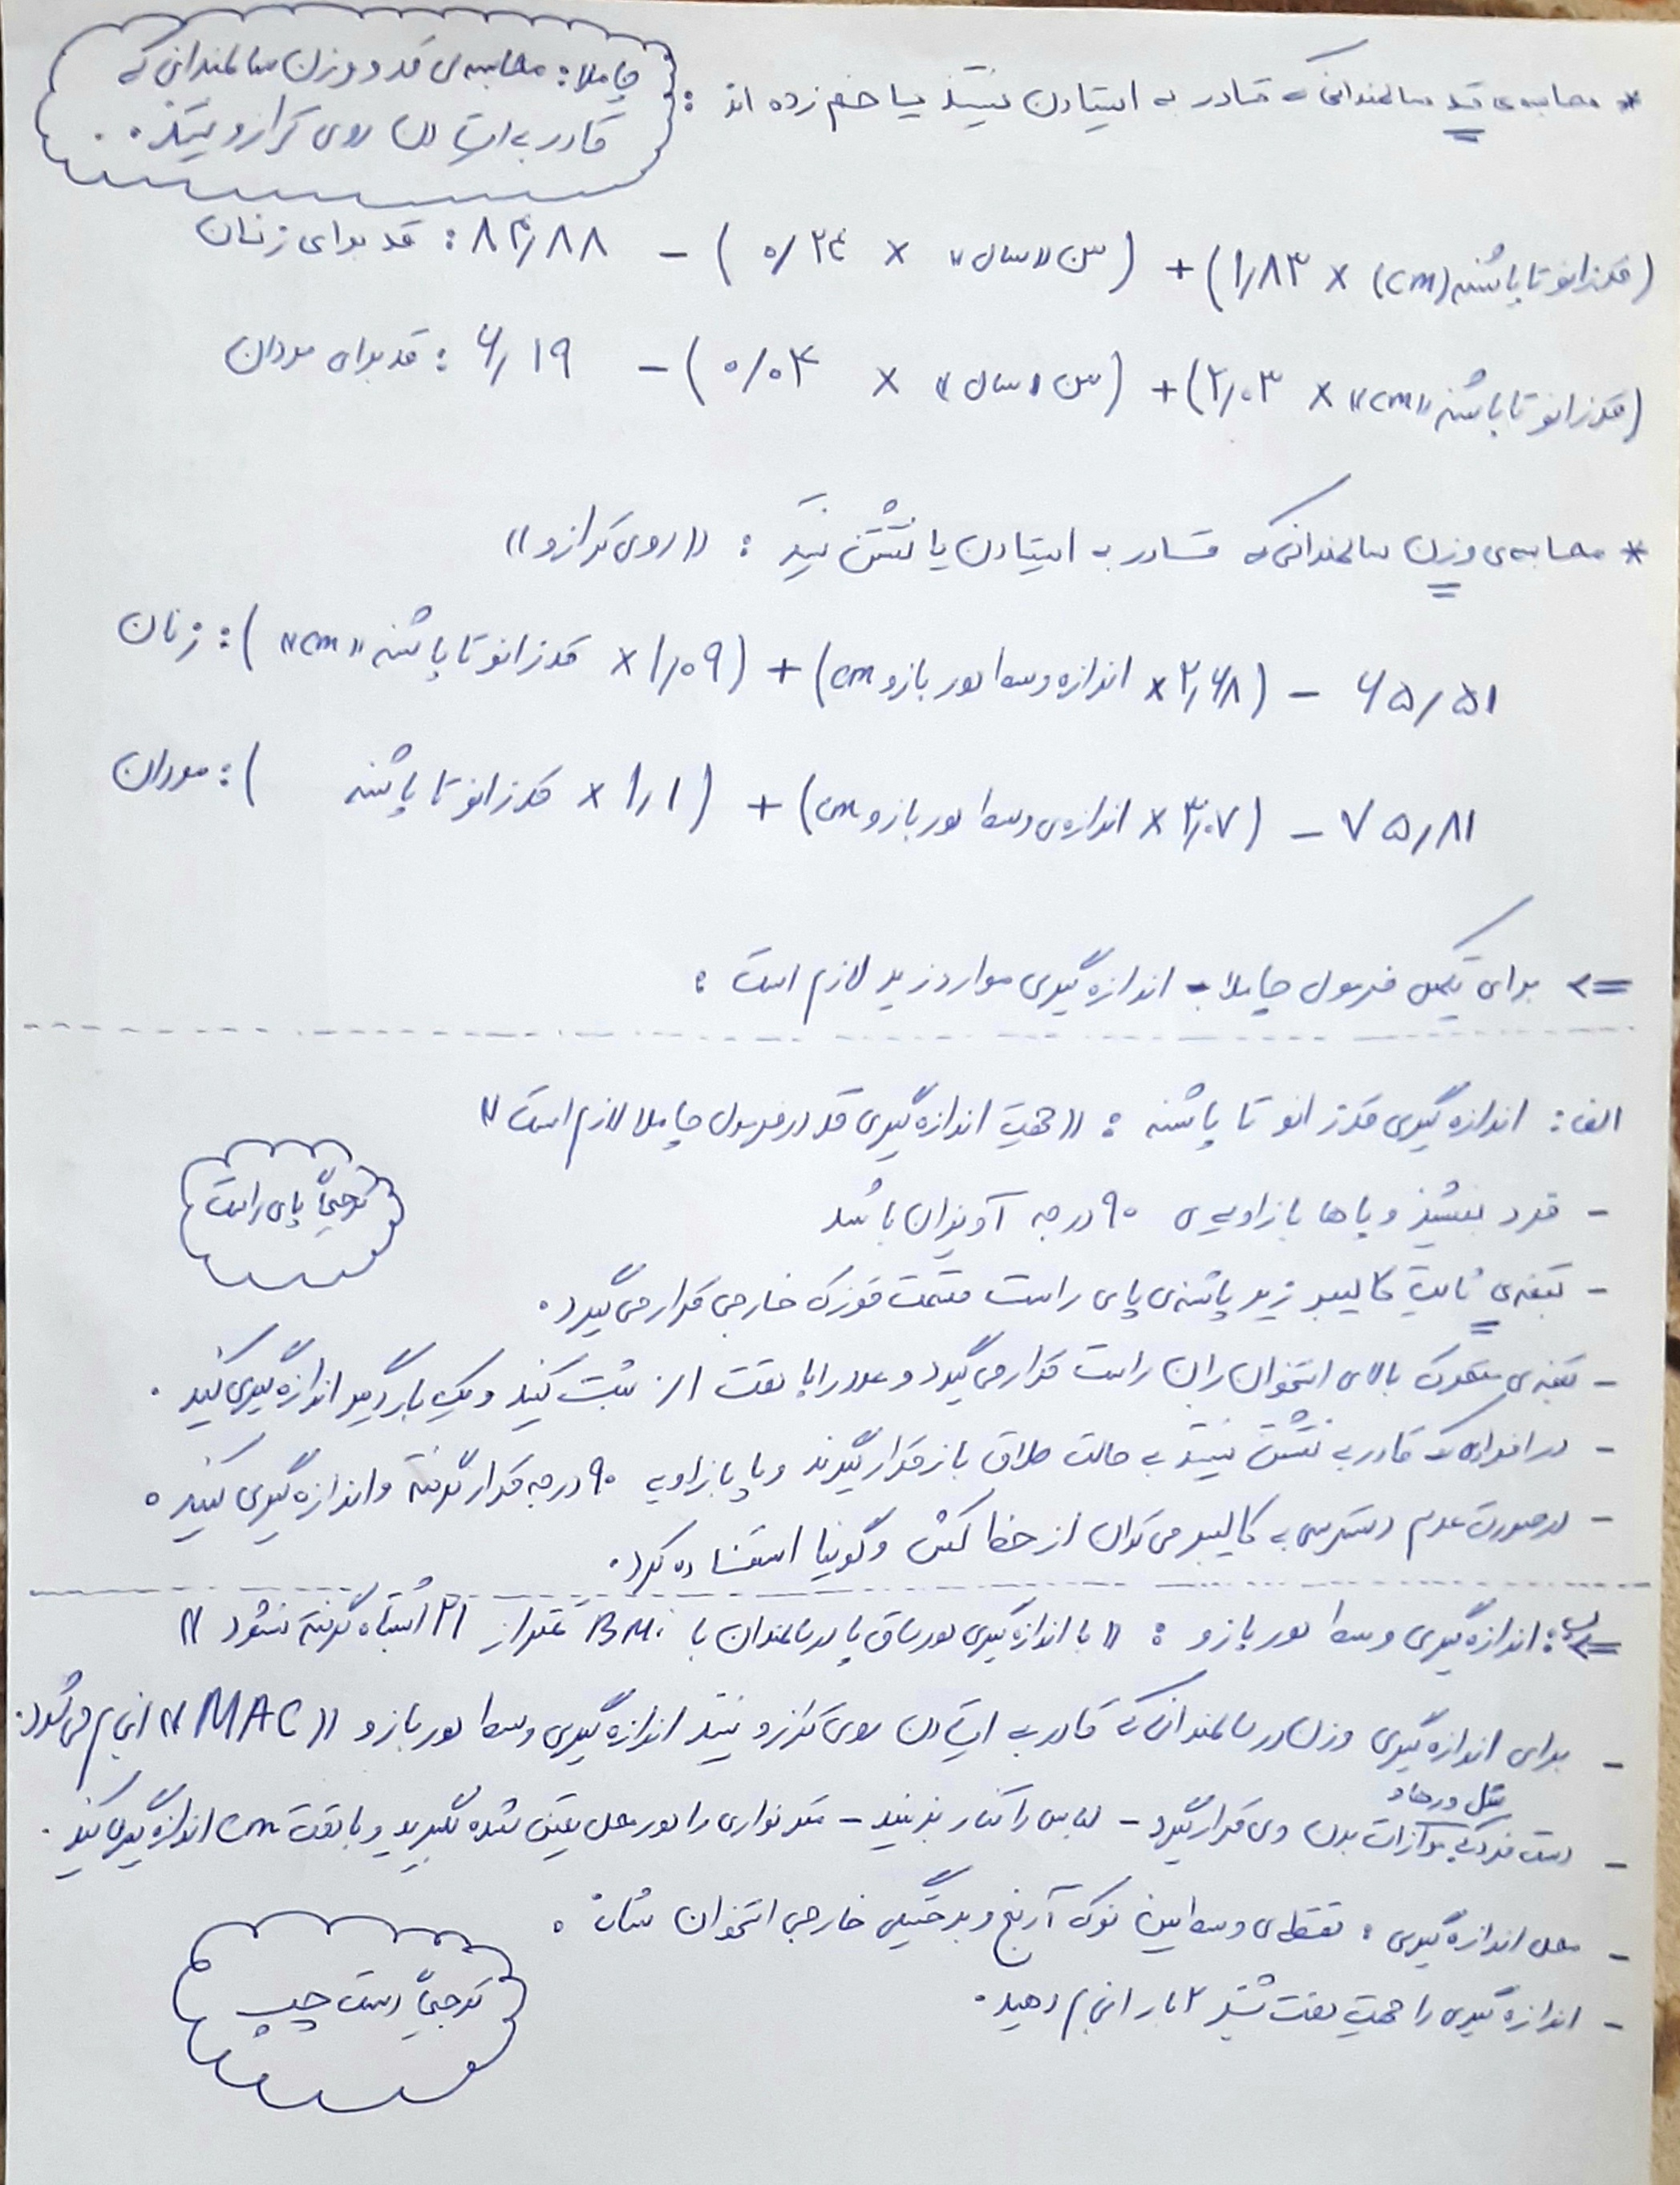 * محاسبه‌ی قد سالمندانی که قادر به ایستادن نیستند یا خم زده اند :
چاملا: محاسبه‌ی قد و وزن سالمندانی که
قادر به ایستادن روی ترازو نیستند.
قد برای زنان : ۸۴٫۸۸ - (۰/۲۴ × سن «سال») + (۱٫۸۳ × (cm) قد زانو تا پاشنه)
قد برای مردان : ۶٫۱۹ - (۰/۰۴ × سن «سال») + (۲٫۰۳ × «cm» قد زانو تا پاشنه)
* محاسبه‌ی وزن سالمندانی که قادر به ایستادن یا نشستن نیستند : «روی ترازو»
زنان : ( «cm» قد زانو تا پاشنه × ۱٫۰۹) + (cm اندازه وسط دور بازو × ۲٫۶۸) - ۶۵٫۵۱
مردان : ( قد زانو تا پاشنه × ۱٫۱) + (cm اندازه‌ی وسط دور بازو × ۳٫۰۷) - ۷۵٫۸۱
=> برای تکمیل فرمول چاملا - اندازه گیری موارد زیر لازم است :
الف : اندازه گیری قد زانو تا پاشنه : «جهت اندازه گیری قد در فرمول چاملا لازم است»
- فرد بنشیند و پاها با زاویه‌ی ۹۰ درجه آویزان باشد
ترجیحاً پای راست
- تیغه‌ی ثابت کالیپر زیر پاشنه‌ی پای راست قسمت قوزک خارجی قرار می گیرد.
- تیغه‌ی متحرک بالای استخوان ران راست قرار می گیرد و عدد را با دقت ۰/۱ ثبت کنید و یک بار دیگر اندازه گیری کنید.
- در افرادی که قادر به نشستن نیستند به حالت طاق باز قرار گیرند و پا با زاویه ۹۰ درجه قرار گرفته و اندازه گیری کنید.
- در صورت عدم دسترسی به کالیپر می توان از خط کش و گونیا استفاده کرد.
=> ب : اندازه گیری وسط دور بازو : «با اندازه گیری دور ساق پا در سالمندان با BMi کمتر از ۲۱ اشتباه گرفته نشود»
- برای اندازه گیری وزن در سالمندانی که قادر به ایستادن روی ترازو نیستند اندازه گیری وسط دور بازو «MAC» انجام می شود.
- دست فرد به موازات بدن وی قرار گیرد - لباس را کنار بزنید - متر نواری را دور محل تعیین شده بگیرید و با دقت cm اندازه گیری کنید.
- محل اندازه گیری : نقطه‌ی وسط بین نوک آرنج و برجستگی خارجی استخوان شانه.
- اندازه گیری را جهت دقت بیشتر ۲ بار انجام دهید.
ترجیحاً دست چپ